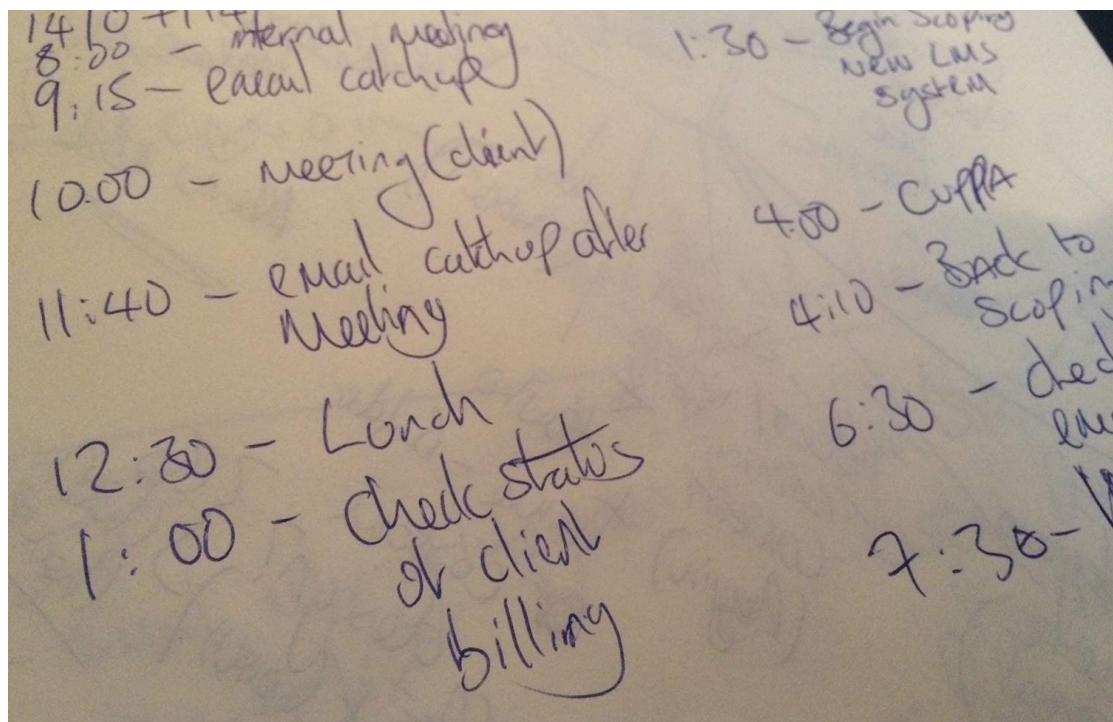 8:00 - internal meeting
9:15 - email catchup
10.00 - meeting (client)
11:40 - email catchup after
meeting
12:30 - Lunch
1:00 - check status
of client
billing
1:30 - Begin Scoping
New LMS
System
4:00 - CUPPA
4:10 - BACK to
Scopin
6:30 - chec
7:30-